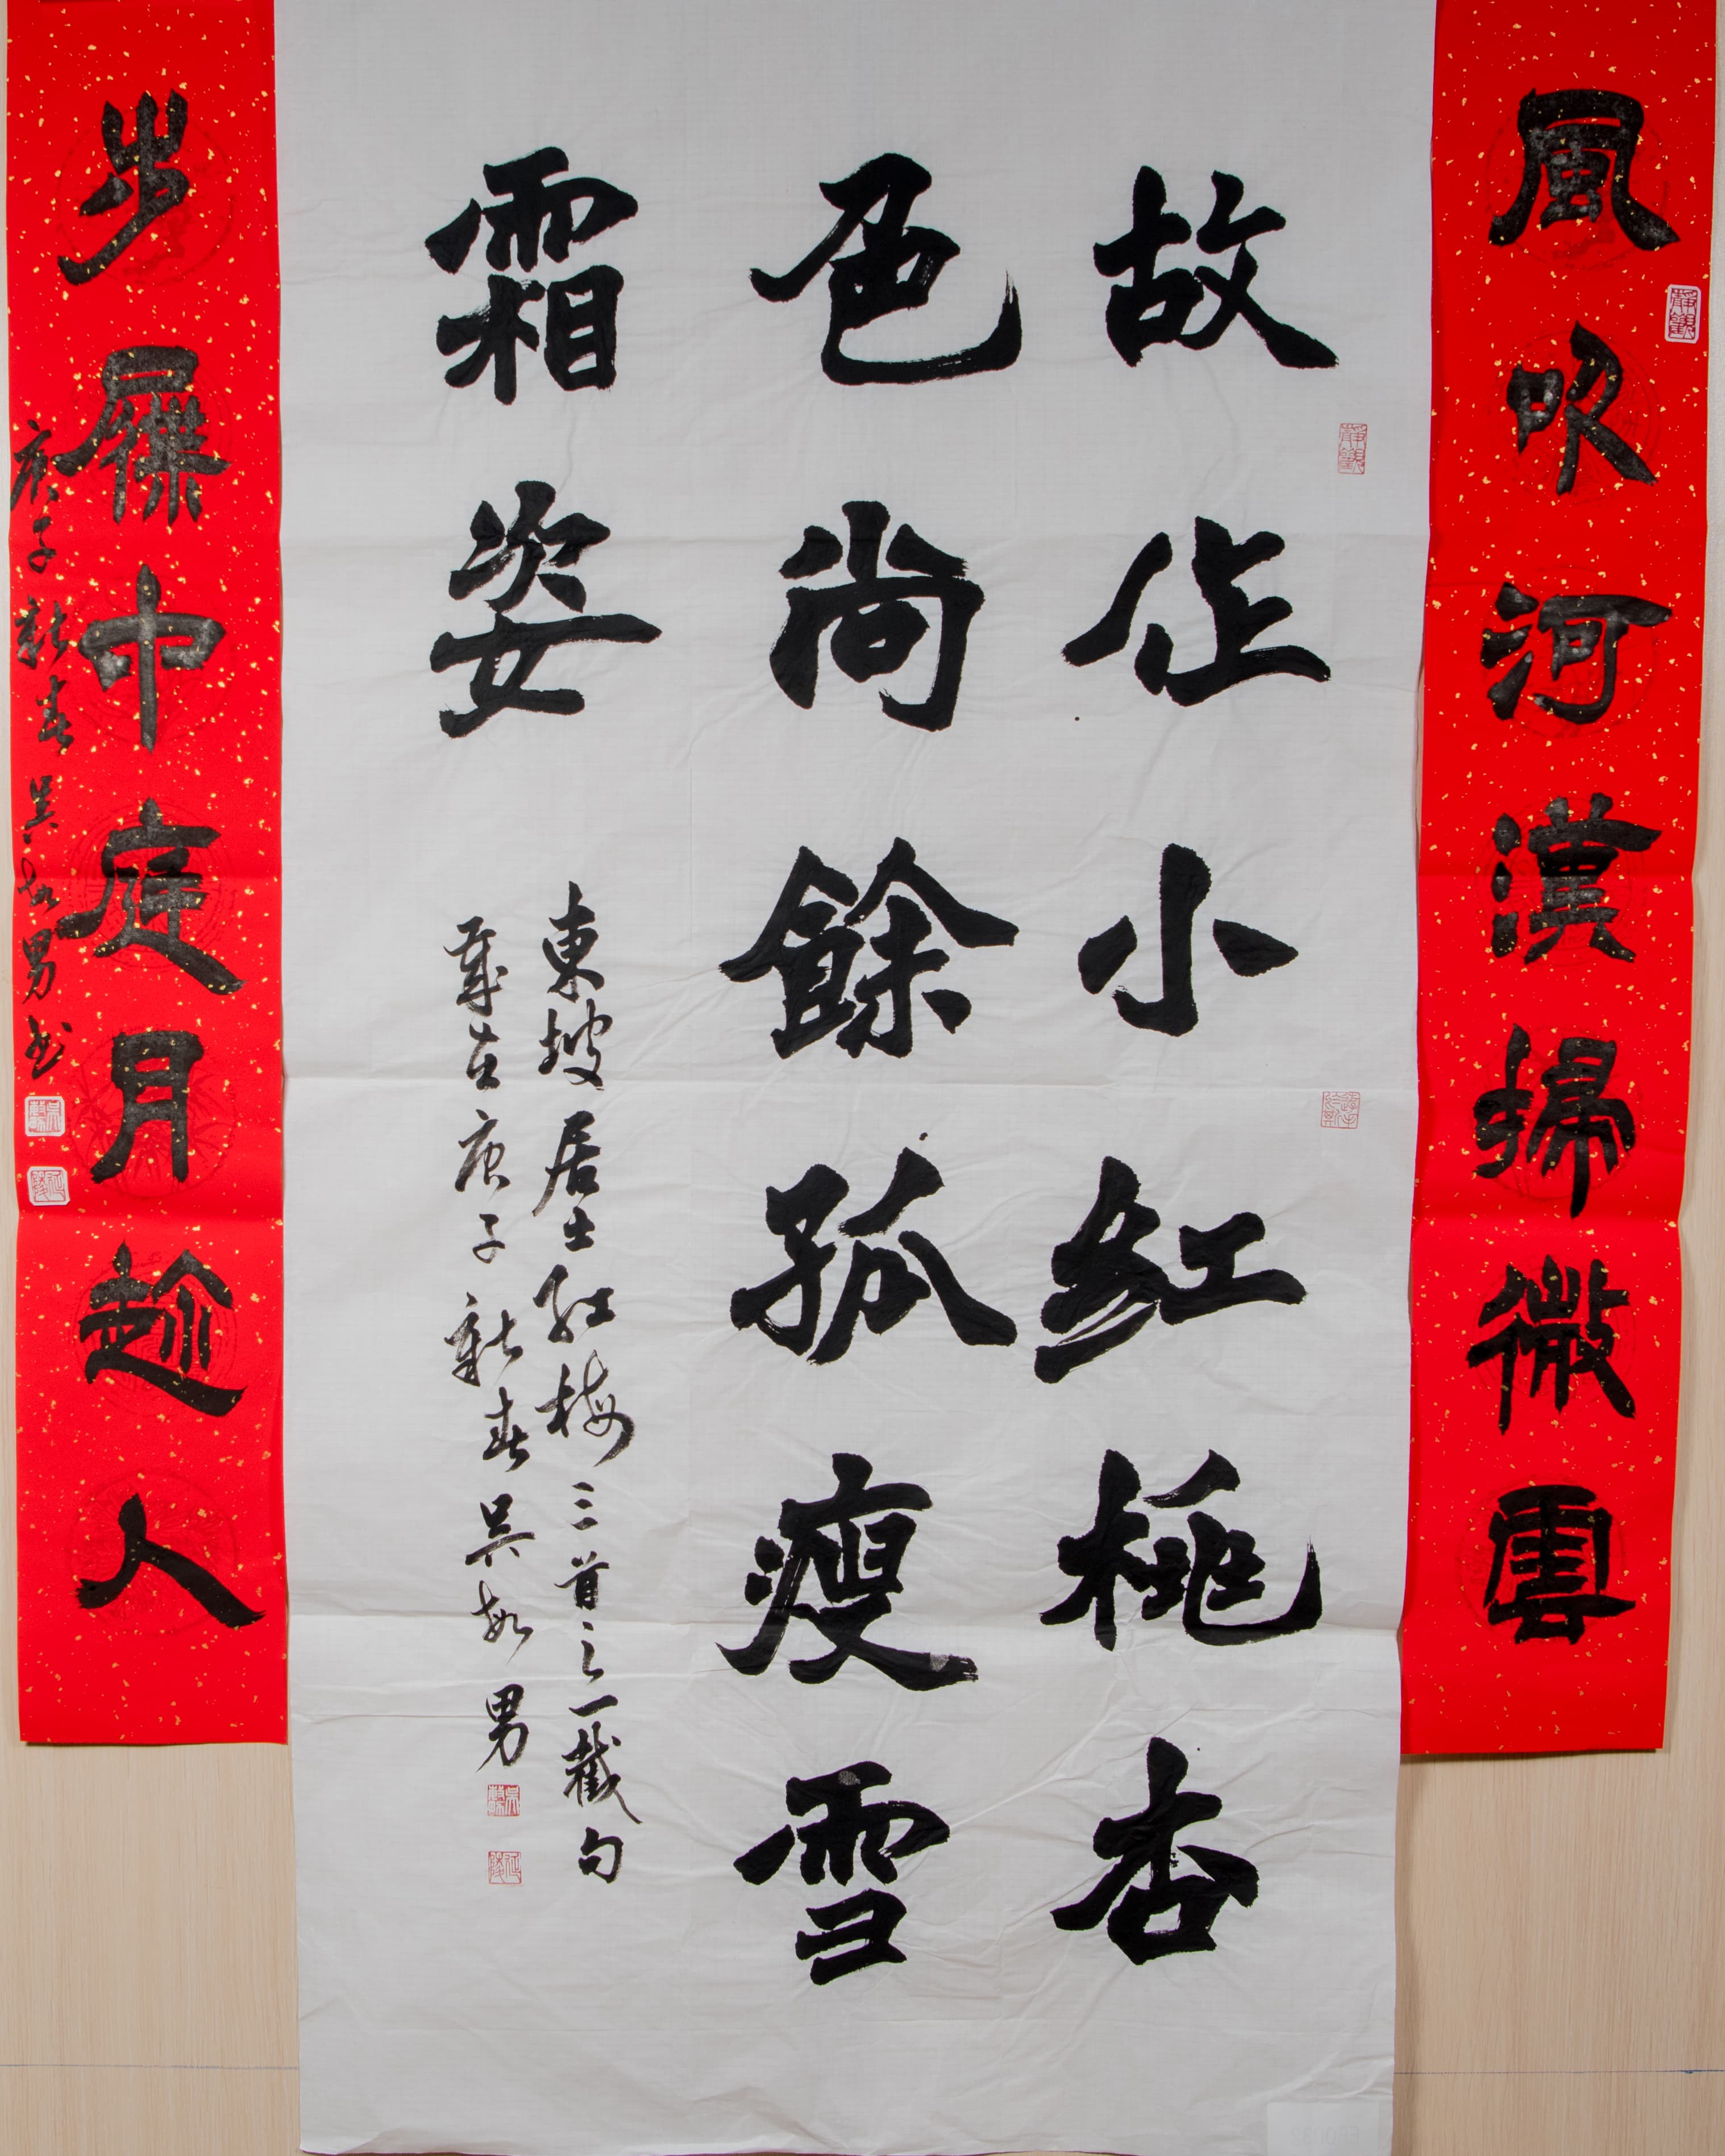 風吹河漢掃微雲
故作小紅桃杏
色尚餘孤瘦雪
霜姿
東坡居士紅梅三首之一截句
歲在庚子新春吳毅男
步屧中庭月趁人
庚子新春吳毅男书